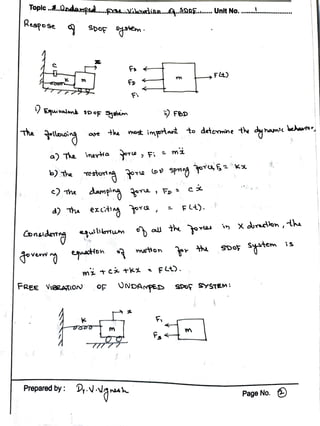 Topic # Undamped free Vibration of SDOF. Unit No. 1
Response of SDOF system.
x
C
K
m
Fs
F2
Fi
m
F(t)
i) Equivalent SDOF System ii) FBD
The following are the most important to determine the dynamic behavior.
a) The inertia force, Fi = mẍ
b) The restoring force (or) spring force, Fs = kx
c) The damping force, FD = cẋ
d) The exciting force, = F(t).
Considering equilibrium of all the forces in X direction, the
governing equation of motion for the SDOF system is
mẍ + cẋ + kx = F(t).
FREE VIBRATION OF UNDAMPED SDOF SYSTEM:
x
K
m
Fi
Fs
m
Prepared by : Dr. V. Vignesh Page No. 2